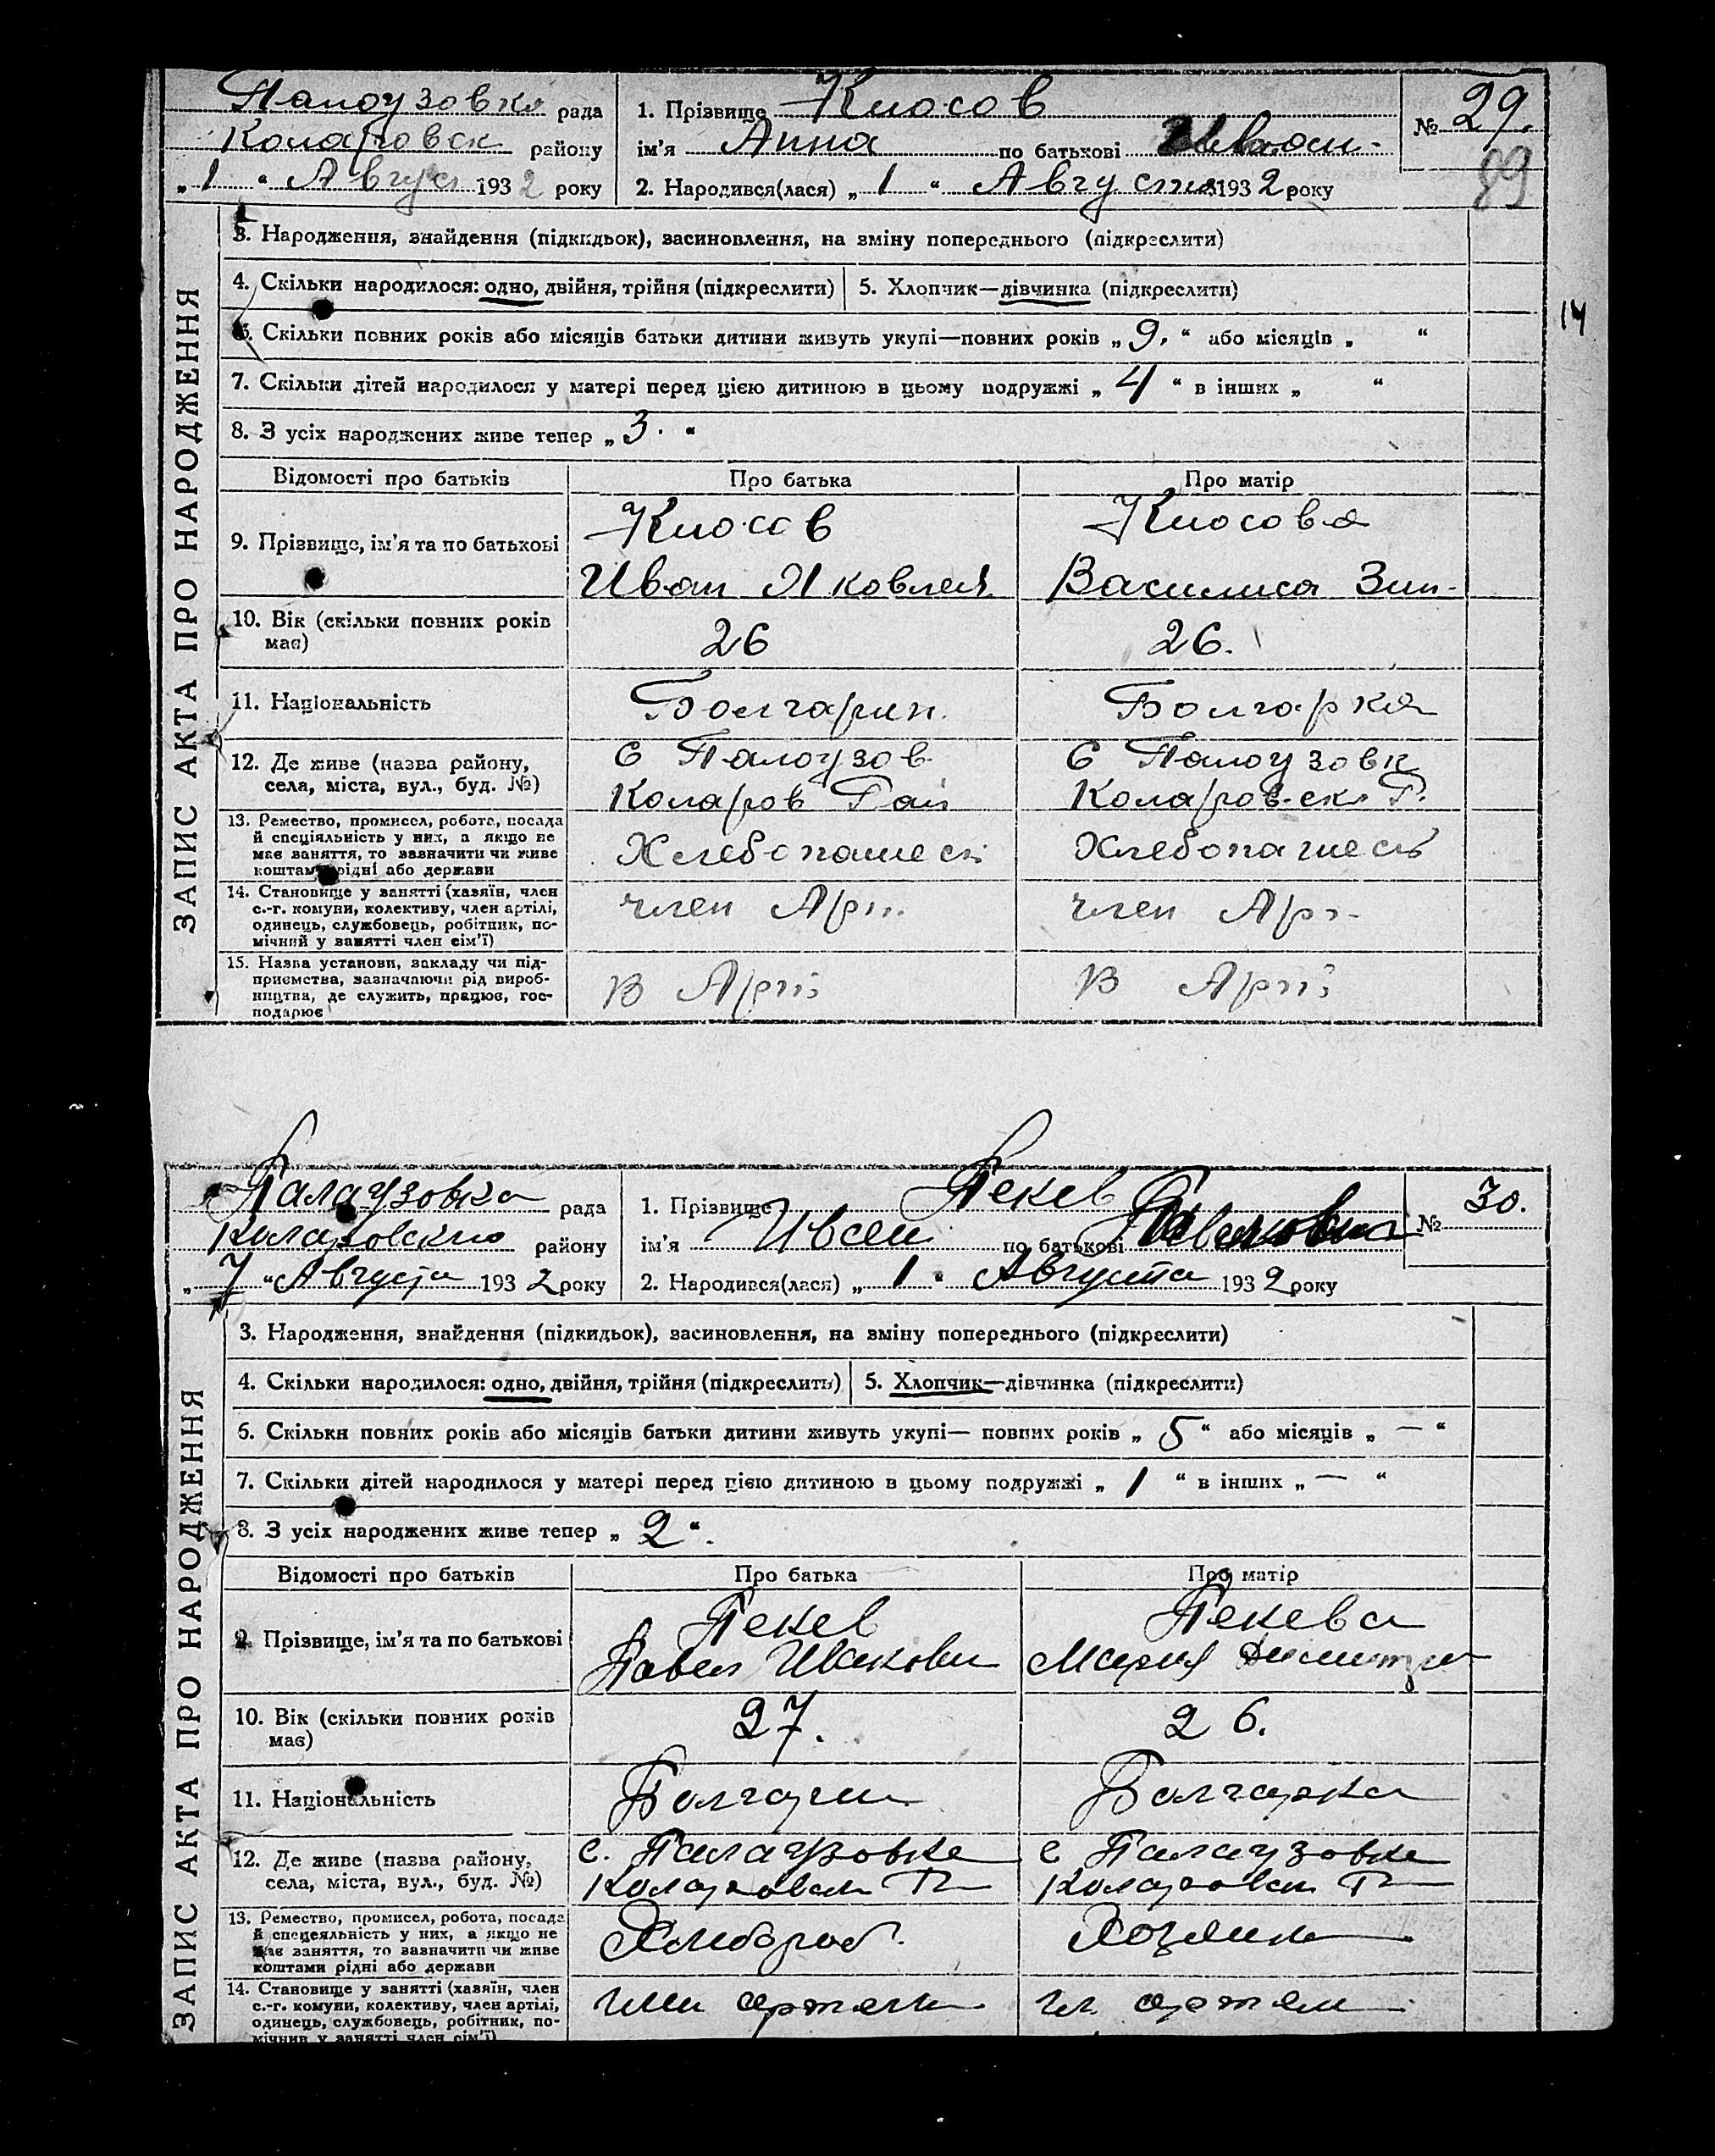 Палоузовка рада
Коларовск району
„1“ Август 1932 року
1. Прізвище Кюосов
ім'я Анна по батькові Иван-
2. Народився(лася) „1“ Августа 1932 року
№ 29.
89
14
ЗАПИС АКТА ПРО НАРОДЖЕННЯ
3. Народження, знайдення (підкидьок), засиновлення, на зміну попереднього (підкреслити)
4. Скільки народилося: одно, двійня, трійня (підкреслити) 5. Хлопчик—дівчинка (підкреслити)
6. Скільки повних років або місяців батьки дитини живуть укупі—повних років „9.“ або місяців „ “
7. Скільки дітей народилося у матері перед цією дитиною в цьому подружжі „4“ в інших „ “
8. З усіх народжених живе тепер „3.“
Відомості про батьків Про батька Про матір
9. Прізвище, ім'я та по батькові
Кюосов Кюосова
Иван Яковлев. Василиса Зин-
10. Вік (скільки повних років
має)
26 26.
11. Національність Болгарин. Болгарка
12. Де живе (назва району,
села, міста, вул., буд. №)
С Палоузов. С Палоузовк
Коларов Рай Коларов.ск. Р.
13. Ремество, промисел, робота, посада
й спеціяльність у них, а якщо не
має заняття, то зазначити чи живе
коштами рідні або держави
Хлебопашес Хлебопашес
14. Становище у занятті (хазяїн, член
с.-г. комуни, колективу, член артілі,
одинець, службовець, робітник, по-
мічний у занятті член сім'ї)
член Арт. член Арт.
15. Назва установи, закладу чи під-
приємства, зазначаючи рід вироб-
ництва, де служить, працює, гос-
подарює
В Арті В Арті
Палаузовка рада
Коларовского району
„7“ Августа 1932 року
1. Прізвище Пекев
ім'я Иван по батькові Павлович
2. Народився(лася) „1“ Августа 1932 року
№ 30.
ЗАПИС АКТА ПРО НАРОДЖЕННЯ
3. Народження, знайдення (підкидьок), засиновлення, на зміну попереднього (підкреслити)
4. Скільки народилося: одно, двійня, трійня (підкреслить) 5. Хлопчик—дівчинка (підкреслити)
6. Скільки повних років або місяців батьки дитини живуть укупі— повних років „5“ або місяців „—“
7. Скільки дітей народилося у матері перед цією дитиною в цьому подружжі „1“ в інших „—“
8. З усіх народжених живе тепер „2“.
Відомості про батьків Про батька Про матір
9. Прізвище, ім'я та по батькові
Пекев Пекева
Павел Иванович Мария Димитри
10. Вік (скільки повних років
має)
27. 26.
11. Національність Болгарин Болгарка
12. Де живе (назва району,
села, міста, вул., буд. №)
с. Палаузовка с Палаузовка
Коларовск Р— Коларовск Р—
13. Ремество, промисел, робота, посада
й спецеяльність у них, а якщо не
має заняття, то зазначити чи живе
коштами рідні або держави
Хлебороб. Хозяйка
14. Становище у занятті (хазяїн, член
с.-г. комуни, колективу, член артілі,
одинець, службовець, робітник, по-
мічник у занятті член сім'ї)
член артели чл. артели